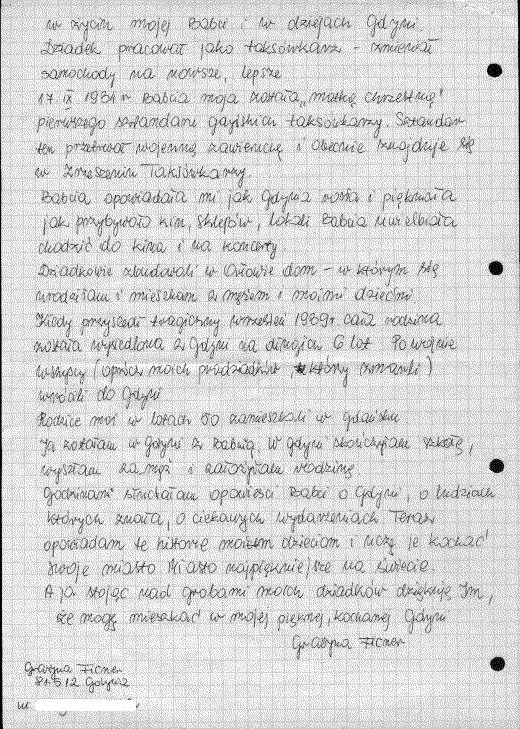 w życiu mojej Babci i w dziejach Gdyni.
Dziadek pracował jako taksówkarz – zmieniał
samochody na nowsze, lepsze
17. IX 1931 r Babcia moja została „matką chrzestną"
pierwszego sztandaru gdyńskich taksówkarzy. Sztandar
ten przetrwał wojenną zawieruchę i obecnie znajduje się
w Zrzeszeniu Taksówkarzy.
Babcia opowiadała mi jak Gdynia rosła i piękniała
jak przybywało kin, sklepów, lokali Babcia uwielbiała
chodzić do kina i na koncerty.
Dziadkowie zbudowali w Orłowie dom – w którym się
urodziłam i mieszkam z mężem i moimi dziećmi
Kiedy przyszedł tragiczny wrzesień 1939 r. cała rodzina
została wysiedlona z Gdyni na długich 6 lat Po wojnie
wszyscy (oprócz moich pradziadków, którzy zmarli)
wrócili do Gdyni
Rodzice moi w latach 50 zamieszkali w Gdańsku.
Ja zostałam w Gdyni z Babcią. W Gdyni skończyłam szkołę,
wyszłam za mąż i założyłam rodzinę
Godzinami słuchałam opowieści Babci o Gdyni, o ludziach
których znała, o ciekawych wydarzeniach Teraz
opowiadam te historie moim dzieciom i uczę je kochać
swoje miasto Miasto najpiękniejsze na świecie.
A ja stojąc nad grobami moich dziadków dziękuję Im,
że mogę mieszkać w mojej pięknej, kochanej Gdyni
Grażyna Ficner
Grażyna Ficner
81-512 Gdynia
ul.